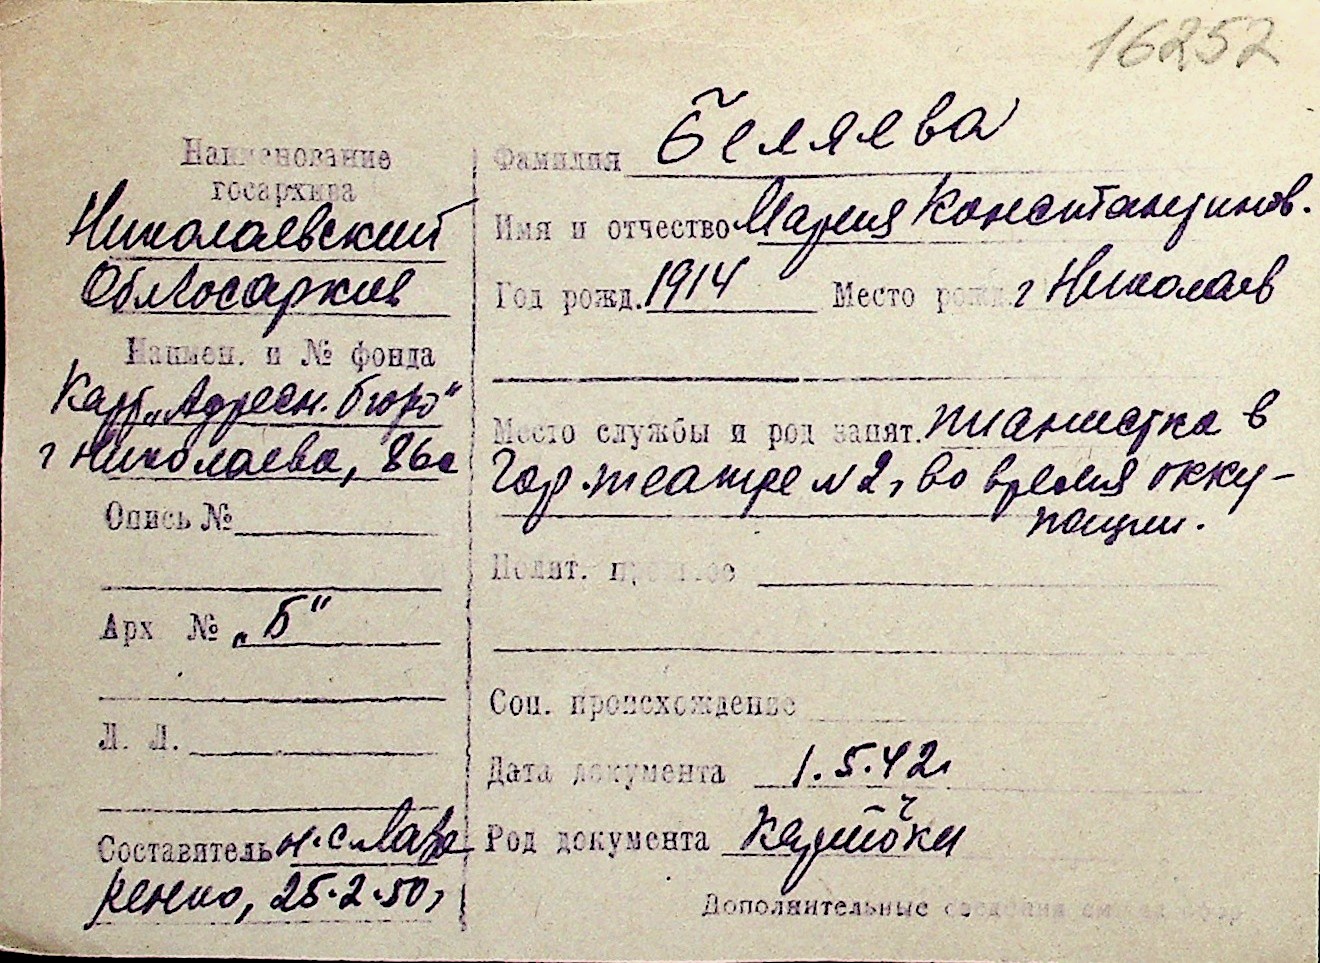 16252
Наименование
госархива
Николаевский
Облгосархив
Наимен. и № фонда
Карт. „Адресн. бюро"
г Николаева, 86а
Опись №
Арх № „Б"
Л. Л.
Составитель н.с Лавренко, 25.2.50г
Фамилия Беляева
Имя и отчество Мария Константинов.
Год рожд. 1914 Место рожд. г Николаев
Место службы и род занят. пианистка в
Гор. театре №2, во время окку-
пации.
Полит. прошлое
Соц. происхождение
Дата документа 1.5.42г
Род документа карточки
Дополнительные сведения см. на обор